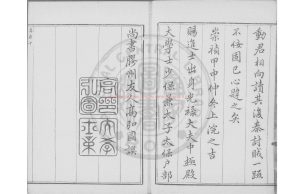 動君相向請共後秦討賊一跋
不佞固已心韙之矣
崇禎甲申仲冬上浣之吉
賜進士出身光祿大夫中極殿
大學士少保兼太子太保戶部
尚書膠州友人高弘圖撰